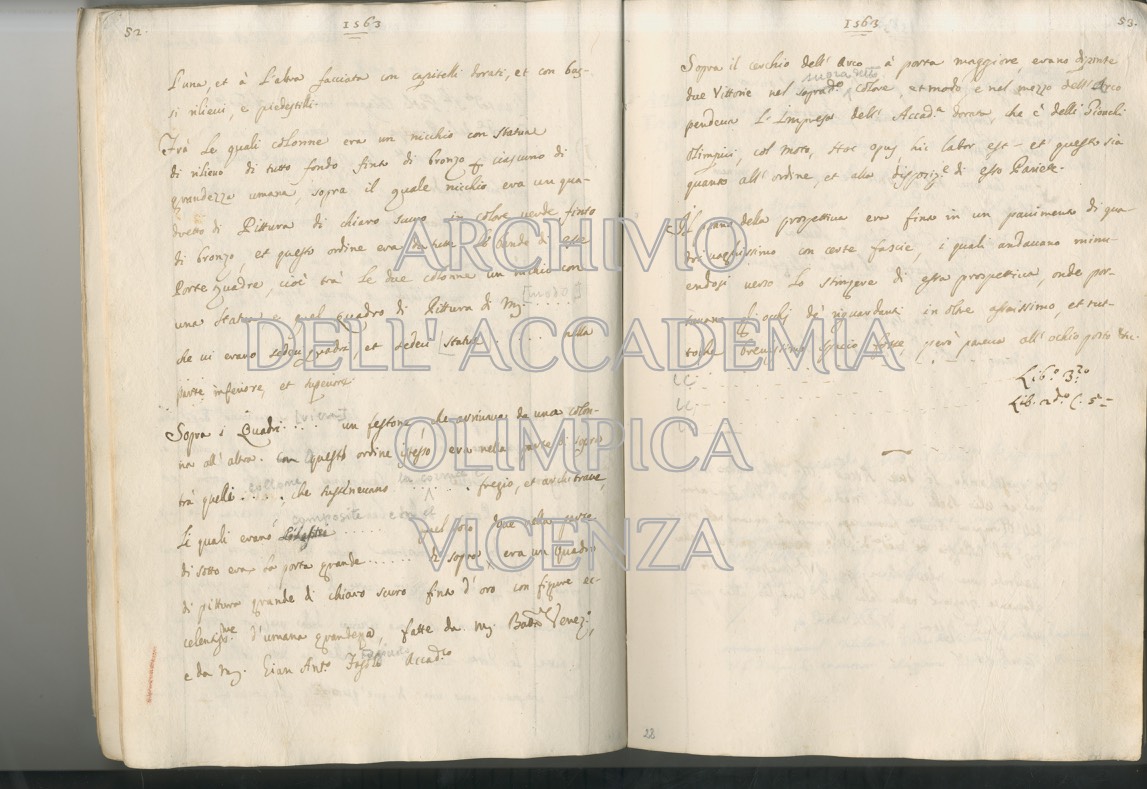 52.
1563
l'una, et à l'altra facciata con capitelli dorati, et con bas-
si rilievi, e piedestilli.
Frà le quali colonne era un nicchio con statua
di rilievo di tutto fondo finta di bronzo ciascuno di
grandezza umana, sopra il quale nicchio era un qua-
dretto di Pittura di chiaro scuro in colore verde finto
di bronzo, et questo ordine era da tutte le bande di esse
Porte quadre, cioè trà le due colonne un nichio con
una statua e quel quadro di Pittura di Mr. . . . .
che vi erano sedeci quadri, et sedeci statue . . . . . nella
parte inferiore, et superiore.
Sopra i Quadri . . . . un festone che arrivava da una colon-
na all' altra. questo ordine stesso era nella parte di sopra
trà quelle . . . . . che sustenevano . . . . . . . fregio, et architrave,
colonne
la cornice
Li quali erano . . . . . . quel oro dove nella
composite era et
di sotto era la porta grande . . . . . . di sopra era un quadro
di pittura grande di chiaro scuro finta d'oro con figure ec-
celentissme d'umana grandezza, fatte da Mr. Batta Venezo,
e da Mr. Gian Anto Fasolo Accadco
1563
53.
Sopra il cerchio dell' Arco à porta maggiore, erano dipinte
due Vittorie nel sopradto colore, et modo, e nel mezzo dell' Arco
pendeva l'Impresa dell' Accada dorata che è delli Giuochi
Olimpici, col moto, Hoc opus hic labor est - et questo sia
quanto all' ordine, et alla disposize di esso Pariete.
Il piano della prospettiva era finta in un pavimento di qua
dri vaghissimo con certe fascie, i quali andavano minu-
endosi verso lo stringere di essa prospettiva, onde por-
tavano gli ochi de' riguardanti in oltre assaissimo, et tut-
toche brevissimo spacio fosse, però pareva all' ochio posto
Libo. 3zo
Lib. 2do C. 5 -
28
ARCHIVIO
DELL'ACCADEMIA
OLIMPICA
VICENZA